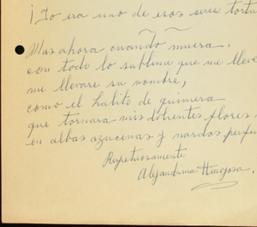 ¡Yo era uno de esos seres tortu
Mas ahora cuando muera,
con todo lo sublime que me lleve
me llevaré su nombre,
como el hábito de quimera
que tornara mis dolientes flores
en albas azucenas y nardos perfu
Respetuosamente
Alejandrina Hinojosa.